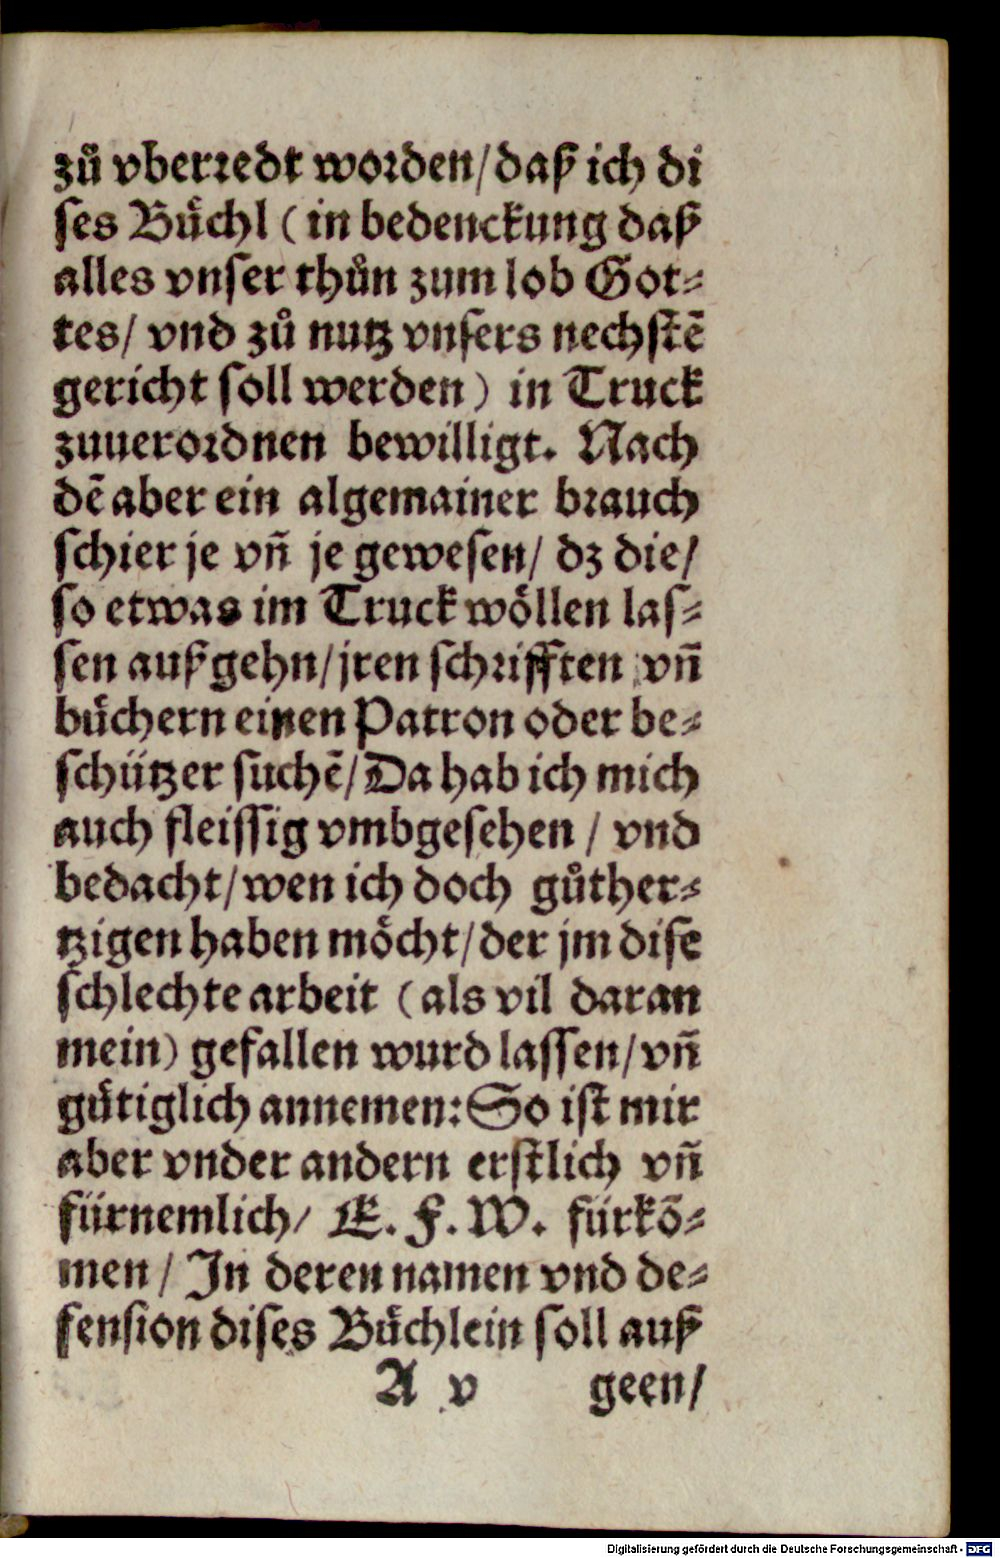 zů vberredt worden/ daß ich di
ses Bůchl ( in bedenckung daß
alles vnser thůn zum lob Got-
tes/ vnd zů nutz vnsers nechstẽ
gericht soll werden ) in Truck
zuuerordnen bewilligt. Nach
dẽ aber ein algemainer brauch
schier je vñ je gewesen/ dz die/
so etwas im Truck wöllen las-
sen außgehn/ jren schrifften vñ
bůchern einen Patron oder be-
schützer suchẽ/ Da hab ich mich
auch fleissig vmbgesehen / vnd
bedacht/ wen ich doch gůther-
tzigen haben möcht/ der jm dise
schlechte arbeit ( als vil daran
mein) gefallen wurd lassen/ vñ
gůtiglich annemen: So ist mir
aber vnder andern erstlich vñ
fürnemlich/ E. F. W. fürkõ-
men / In deren namen vnd de-
fension dises Bůchlein soll auß
A v geen/
Digitalisierung gefördert durch die Deutsche Forschungsgemeinschaft - DFG